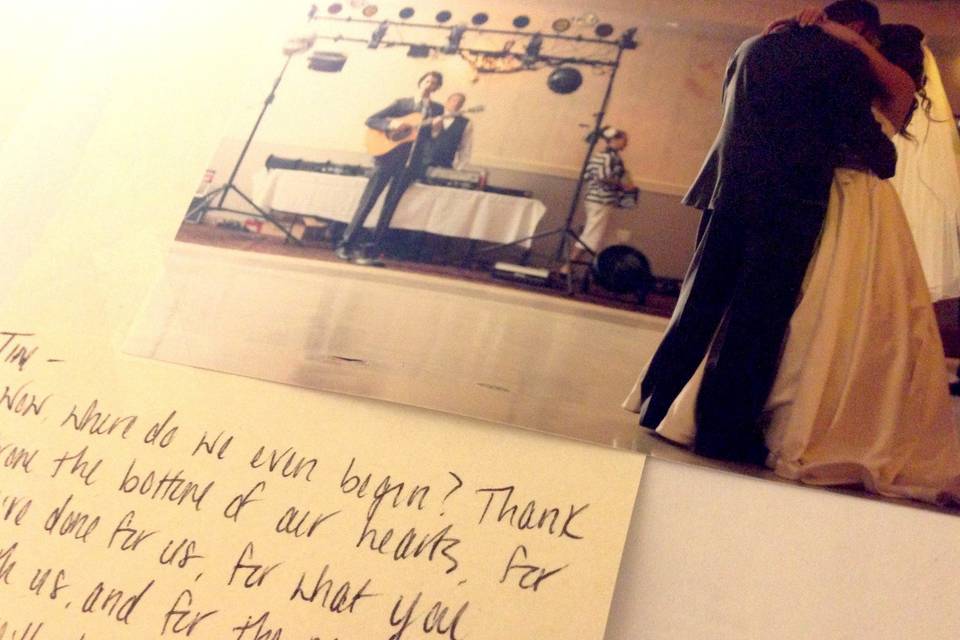 Tim -
Wow, where do we even begin? Thank
the bottom of our hearts, for
done for us, for what you
us, and for the